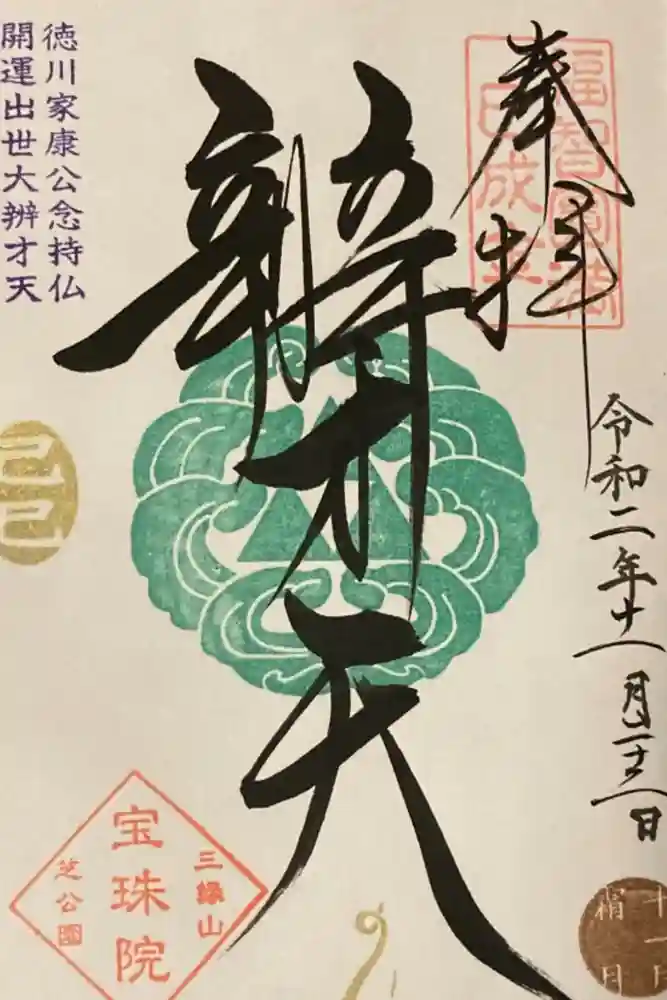 奉拝
福智圓満
巳成金
令和二年十一月二十二日
十一月
霜月
辨才天
徳川家康公念持仏
開運出世大辨才天
己巳
三縁山
宝珠院
芝公園